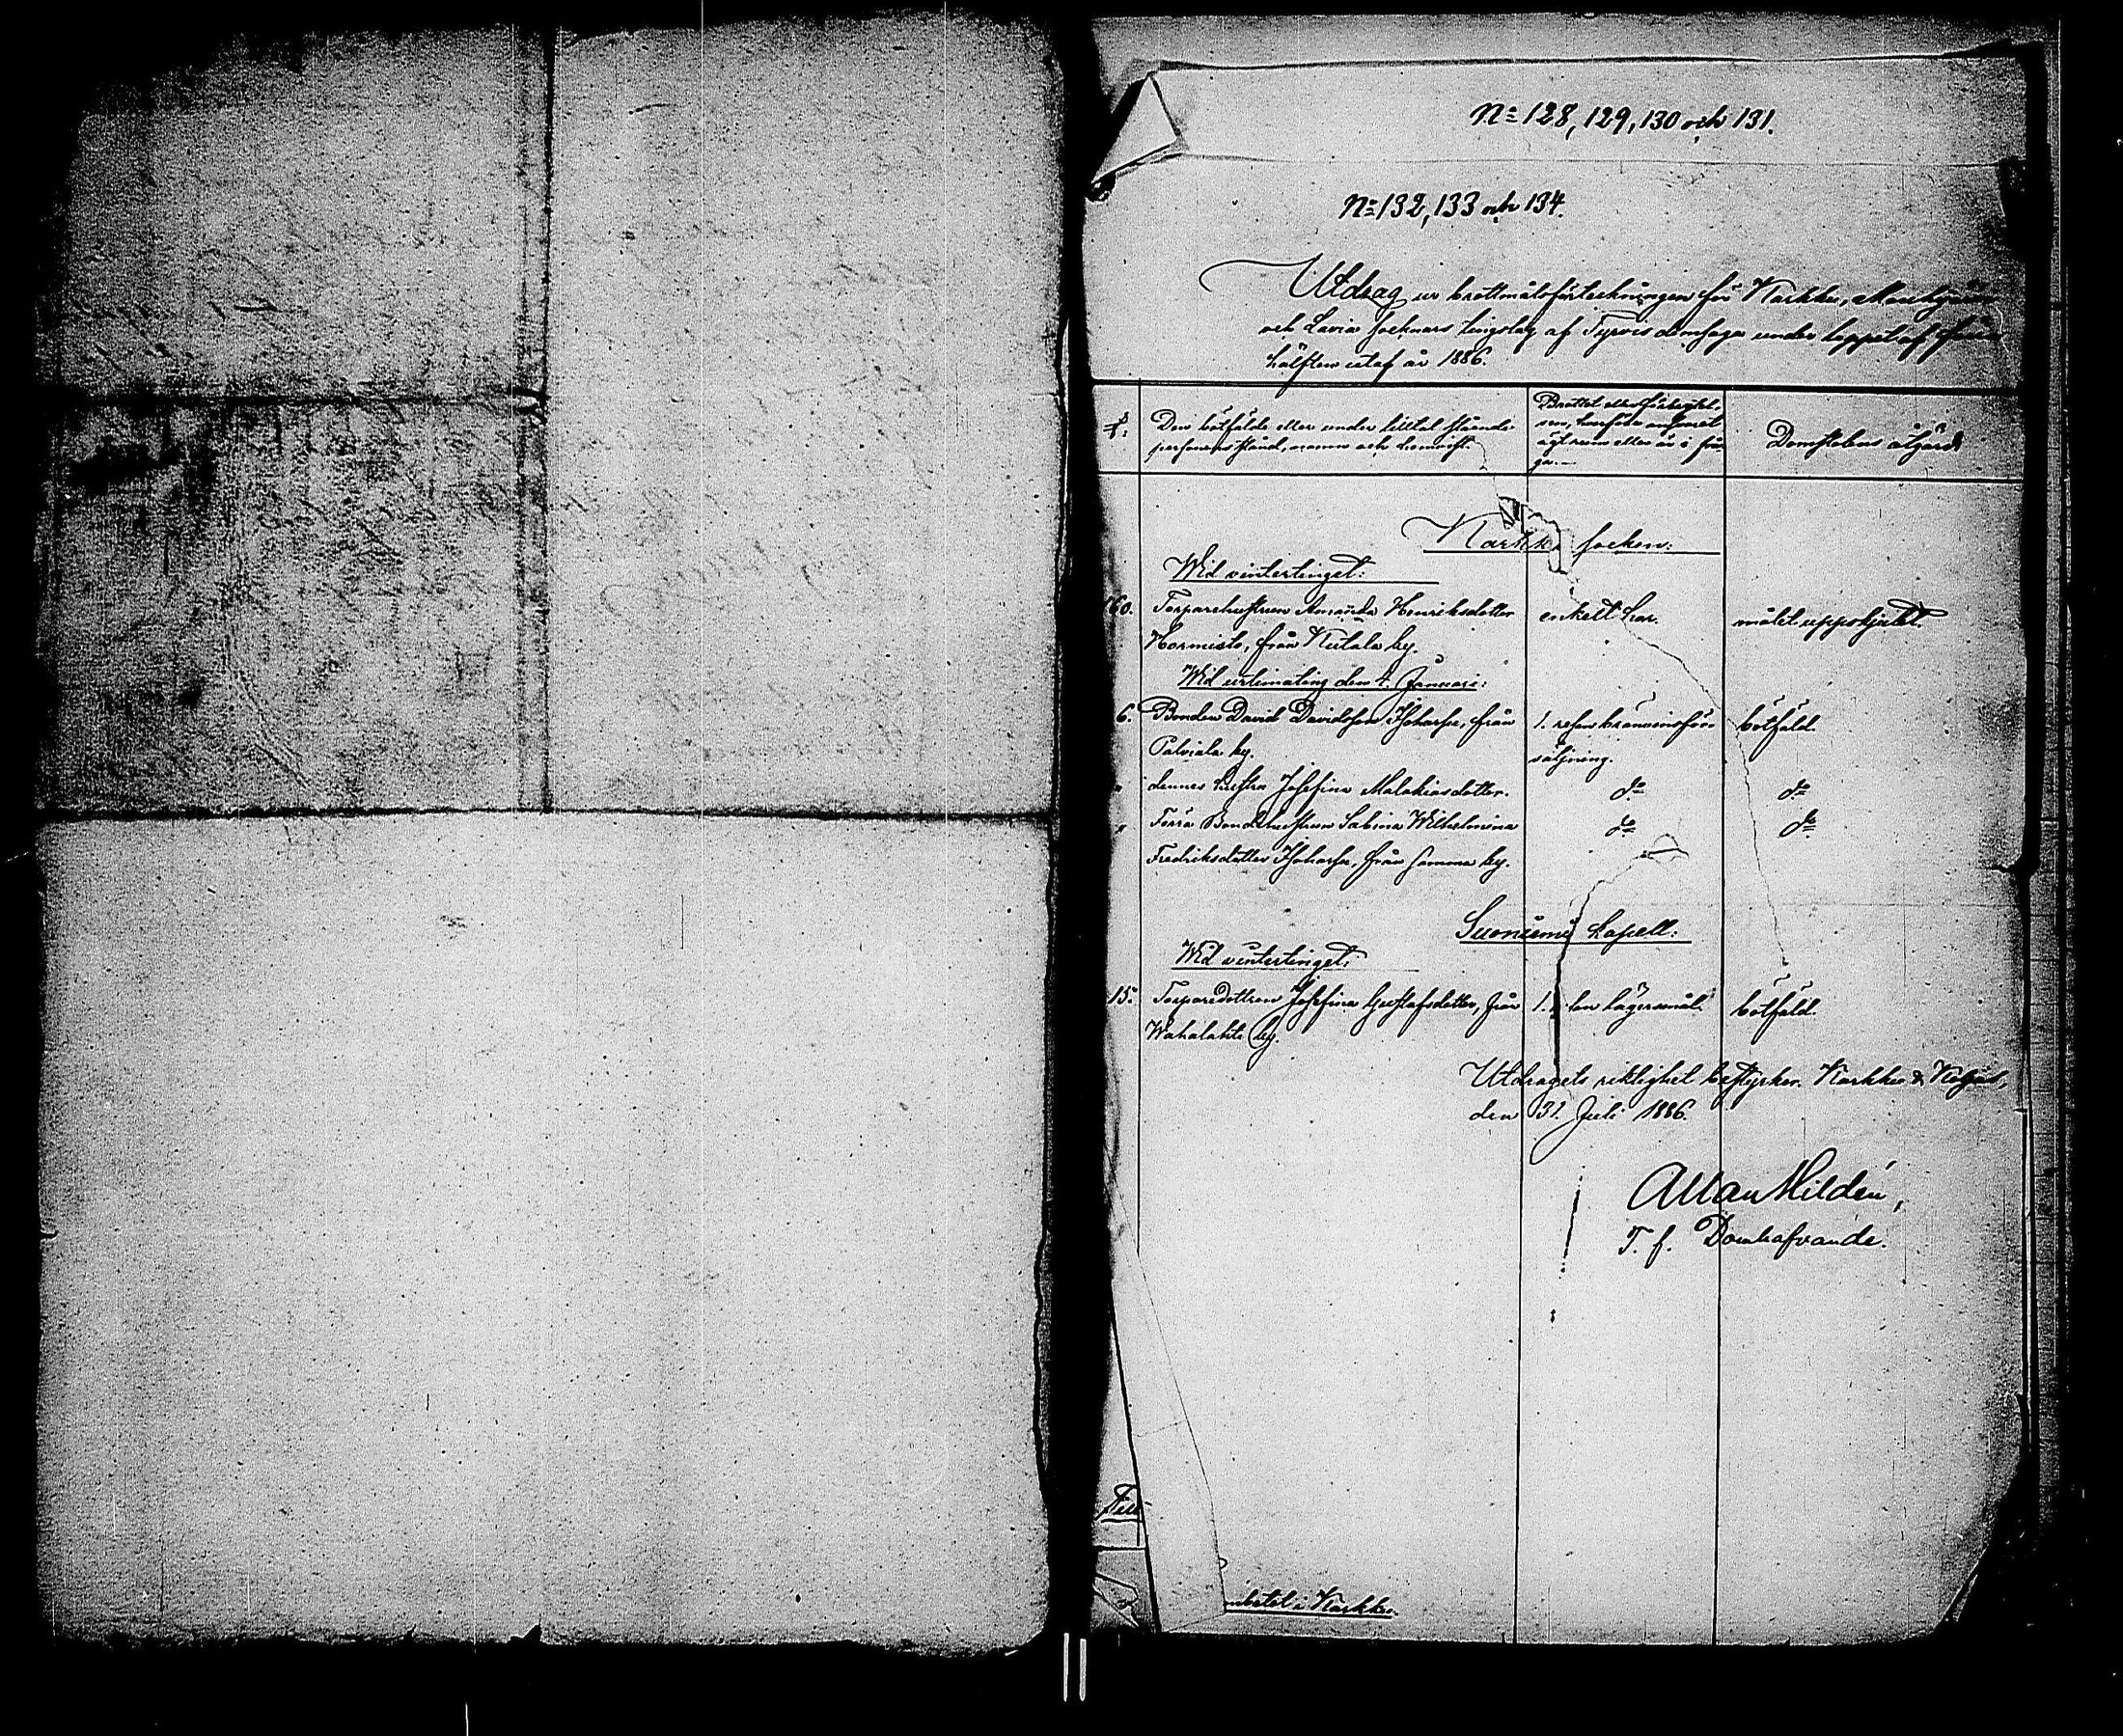 N:o 128, 129, 130 och 131.
N:o 132, 133 och 134.
Utdrag ur brottmålsförteckningen för Karkku, Mouhijärvi
och Lavia socknars tingslag af Tyrvis domsaga under loppet af förra
hälften utaf år 1886.
Den bötfälde eller under tilltal stående
personens stånd, namn och hemvist.
Brottet eller förbrytel-
sen, hvarföre ansvaret
ägt rum eller är i frå-
ga.
Domstolens åtgärd
Karkku socken:
Wid vintertinget:
60. Torparehustrun Amanda Henriksdotter
Hormisto, från Kutala by.
enkelt hor.
målet uppskjutet.
Wid urtimating den 4. Januari:
6. Bonden David Davidsson Isoharhu, från
Palviala by.
1. resan bränvinsför-
säljning.
botfäld.
" dennes hustru Josefina Malakiasdotter.
d:o
d:o
" Förra Bondehustrun Sabina Wilhelmina
d:o
d:o
Fredriksdotter Isoharhu, från samma by.
Suoniemi kapell:
Wid vintertinget:
15. Torparedottren Josefina Gustafsdotter, från
Wahalahti by.
1. lägersmål.
botfäld.
Utdragets riktighet bestyrker. Karkku &
den 31 Juli 1886.
Allan Hildén,
T. f. Domhafvande.
Till
embetet i Karkku.